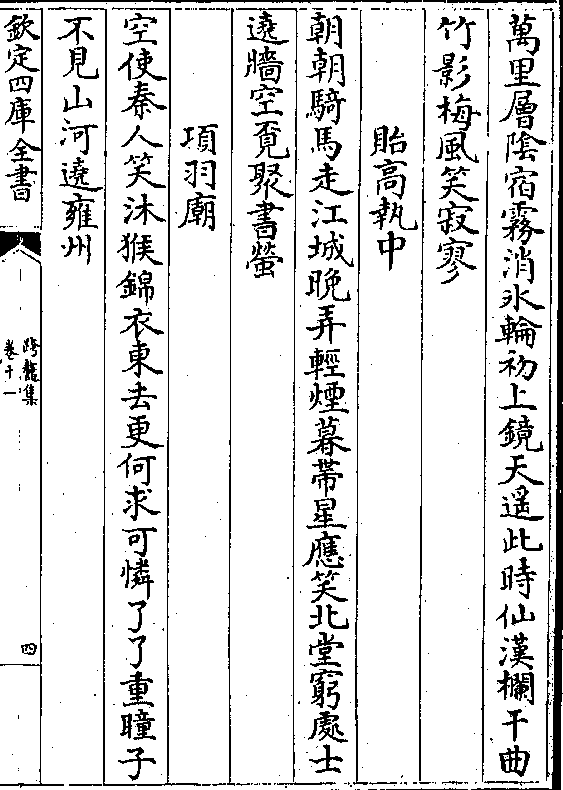 萬里層陰宿霧消氷輪初上鏡天遥此時仙漢欄干曲
竹影梅風笑寂寥
貽高執中
朝朝騎馬走江城晚弄輕煙暮帶星應笑北堂窮處士
遶牆空覓聚書螢
項羽廟
空使秦人笑沐猴錦衣東去更何求可憐了了重瞳子
不見山河遶雍州
欽定四庫全書
跨鼇集
卷十一
四